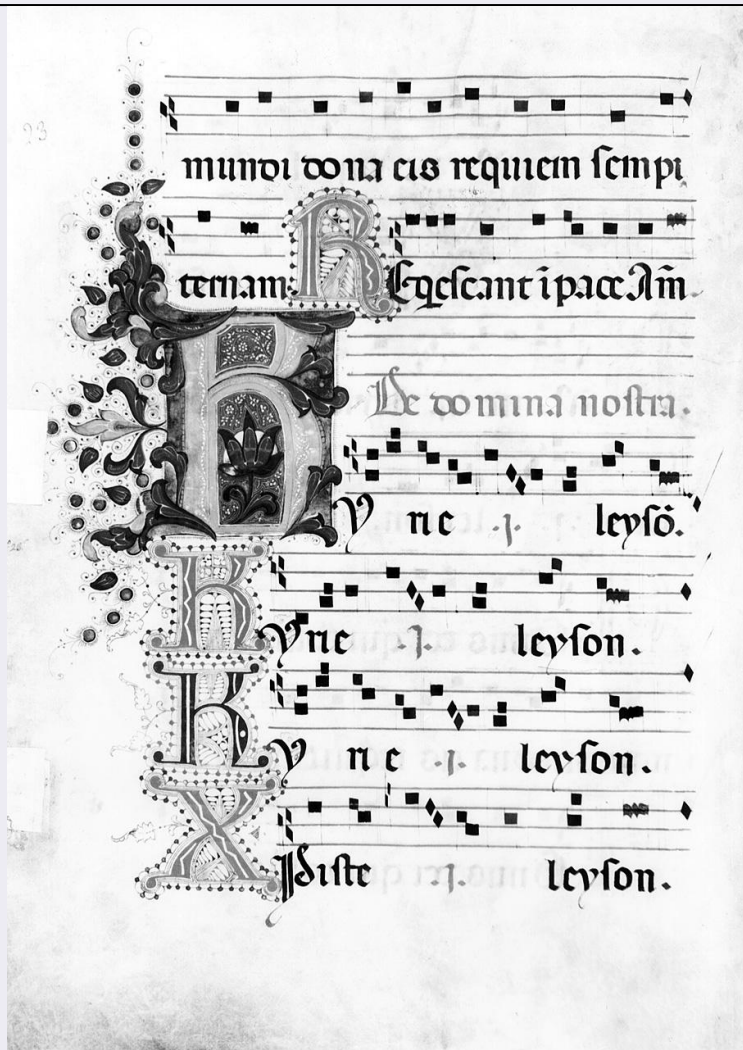 23
mundi dona eis requiem sempi
ternam. REqescant ī pace Am̄
De domina nostra.
Kyrie .j. leysō.
Kyrie .j. leyson.
Kyrie .j. leyson.
Xpiste .j. leyson.